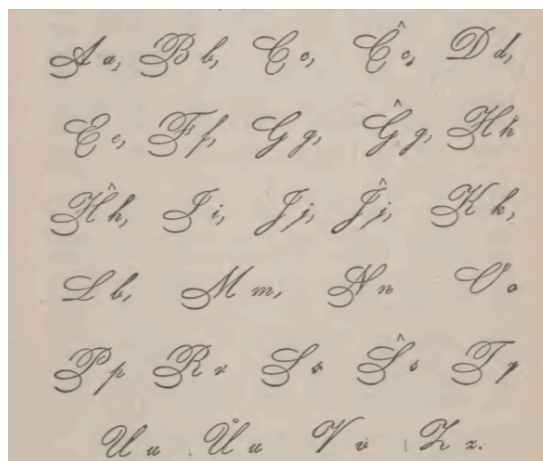 A a, B b, C c, Ĉ c, D d,
E e, F f, G g, Ĝ g, H h
Ĥ h, I i, J j, Ĵ j, K k,
L l, M m, N n O o
P p R r S s Ŝ s T t
U u Ŭ u V v Z z.